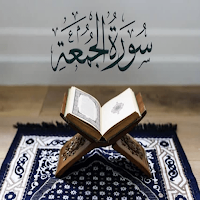 سُورَةُ الجُمُعَة